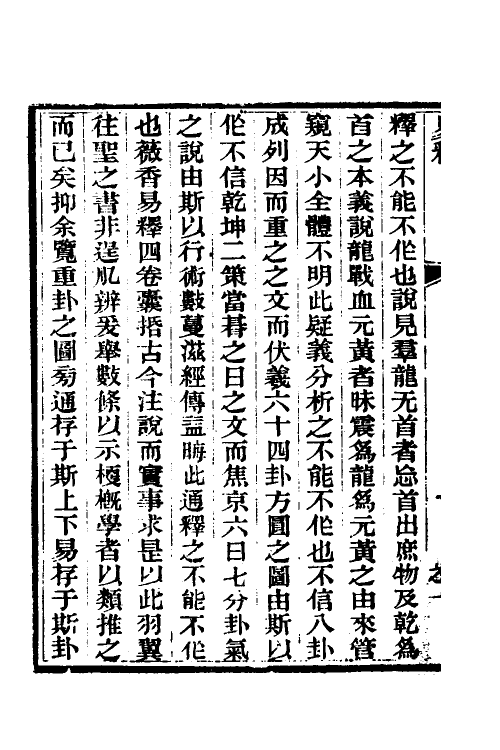 釋之不能不作也說見羣龍无首者忘首出庶物及乾爲
首之本義說龍戰血元黃者昧震爲龍爲元黃之由來管
窺天小全體不明此疑義分析之不能不作也不信八卦
成列因而重之之文而伏羲六十四卦方圓之圖由斯以
作不信乾坤二策當朞之日之文而焦京六日七分卦氣
之說由斯以行術數蔓滋經傳益晦此通釋之不能不作
也薇香易釋四卷囊括古今注說而實事求是以此羽翼
往聖之書非逞肊辨爰舉數條以示梗槪學者以類推之
而已矣抑余覽重卦之圖旁通存于斯上下易存于斯卦